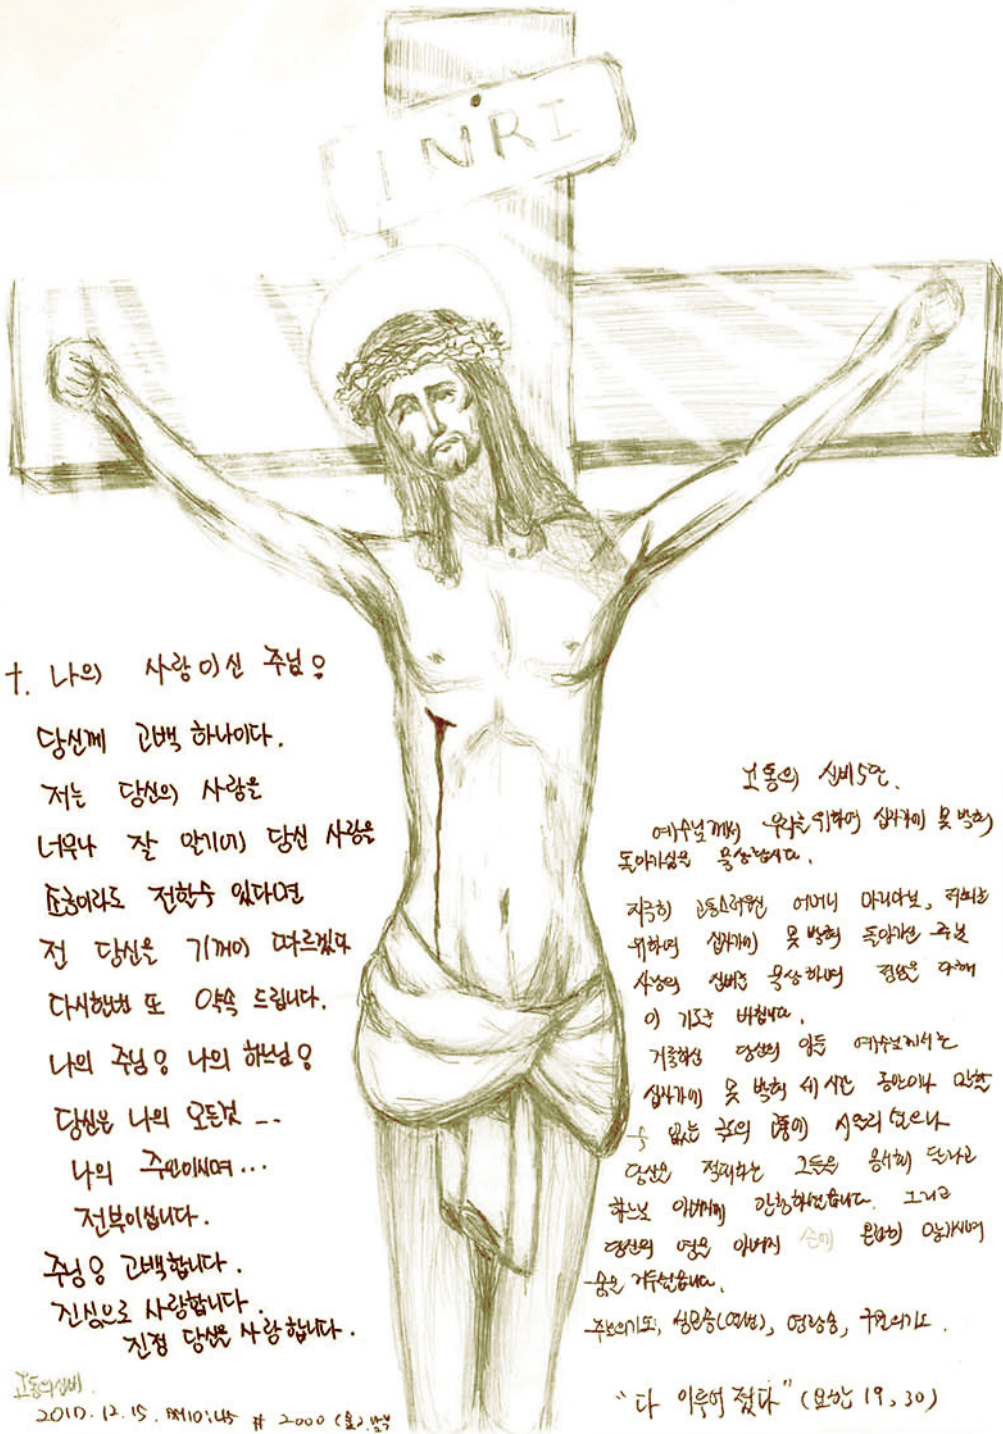 INRI
†. 나의 사랑이신 주님!
당신께 고백 하나이다.
저는 당신의 사랑을
너무나 잘 알기에 당신 사랑을
조금이라도 전할수 있다면
전 당신을 기꺼이 따르겠다
다시한번 또 약속 드립니다.
나의 주님! 나의 하느님!
당신은 나의 모든것 ...
나의 주인이시며 ...
전부이십니다.
주님! 고백합니다.
진심으로 사랑합니다.
진정 당신을 사랑합니다.
고통의신비
2010.12.15. PM10:45 # 2000
고통의 신비5단.
예수님께서 우리를 위하여 십자가에 못 박혀
돌아가심을 묵상합시다.
지극히 고통스러우신 어머니 마리아님, 저희를
위하여 십자가에 못 박혀 돌아가신 주님
사랑의 신비를 묵상하며 정성을 다해
이 기도를 바칩니다.
거룩하신 당신의 아들 예수님께서는
십자가에 못 박혀 세 시간 동안이나 말할
수 없는 고통에 시달리셨으나
당신을 적대하는 그들을 용서해 달라고
하느님 아버지께 간청하셨습니다. 그리고
당신의 영을 아버지 손에 온전히 맡기시며
숨을 거두셨습니다.
주님의기도, 성모송(열번), 영광송, 구원의기도.
"다 이루어 졌다" (요한 19, 30)